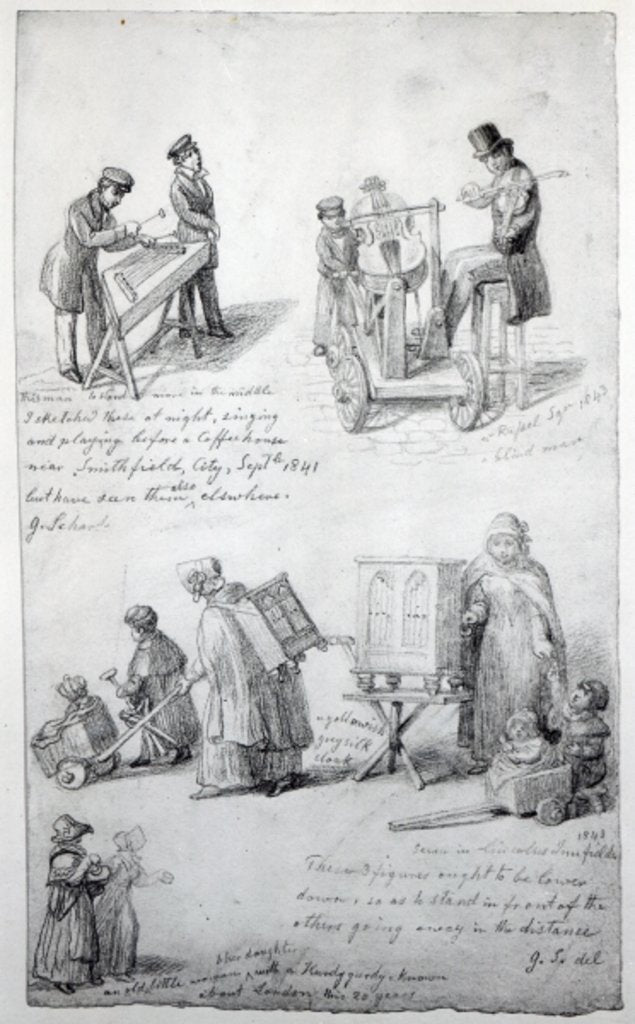 This man to stand more in the middle
I sketched these at night, singing
and playing before a Coffeehouse
near Smithfield, City, Septbr 1841
but have seen them also elswhere.
G. Scharf.
Russel Sqr 1843
a blind man
a yellowish
grey silk
cloak
1843
seen in Lincolns Innfields
These 3 figures ought to be lower
down, so as to stand in front of the
others going away in the distance
G. S. del
& her daughter
an old little woman with a Hurdygurdy known
about London this 20 years